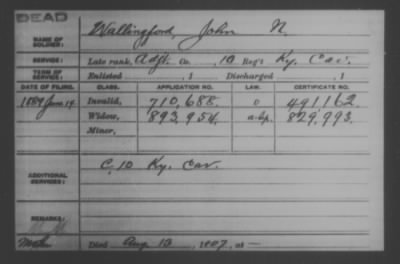 DEAD
NAME OF SOLDIER: Wallingford, John N.
SERVICE: Late rank, Adjt. Co. , 10 Reg't Ky. Cav.
TERM OF SERVICE: Enlisted , 1 Discharged , 1
DATE OF FILING. CLASS. APPLICATION NO. LAW. CERTIFICATE NO.
1889 June 19 Invalid, 710,688. O 491,162.
Widow, 893,954. a-hp. 829,993.
Minor,
ADDITIONAL SERVICES: C, 10 Ky. Cav.
REMARKS:
Died Aug 10, 1907, at —